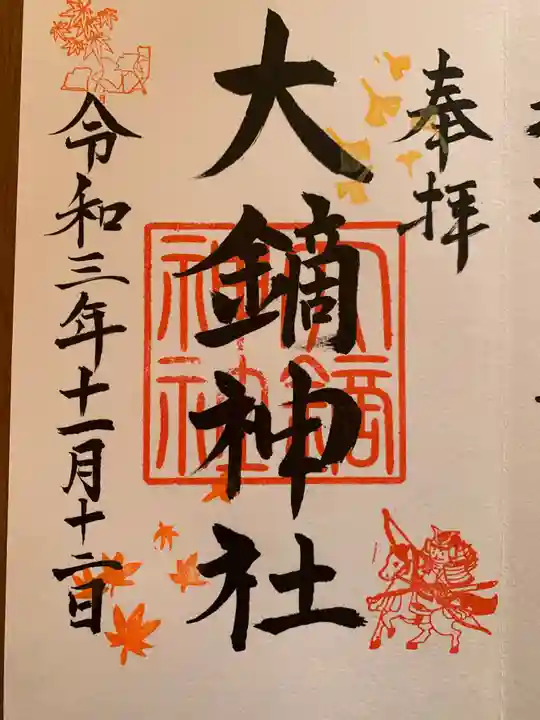 奉拝
大鏑神社
大鏑神社
令和三年十一月十二日